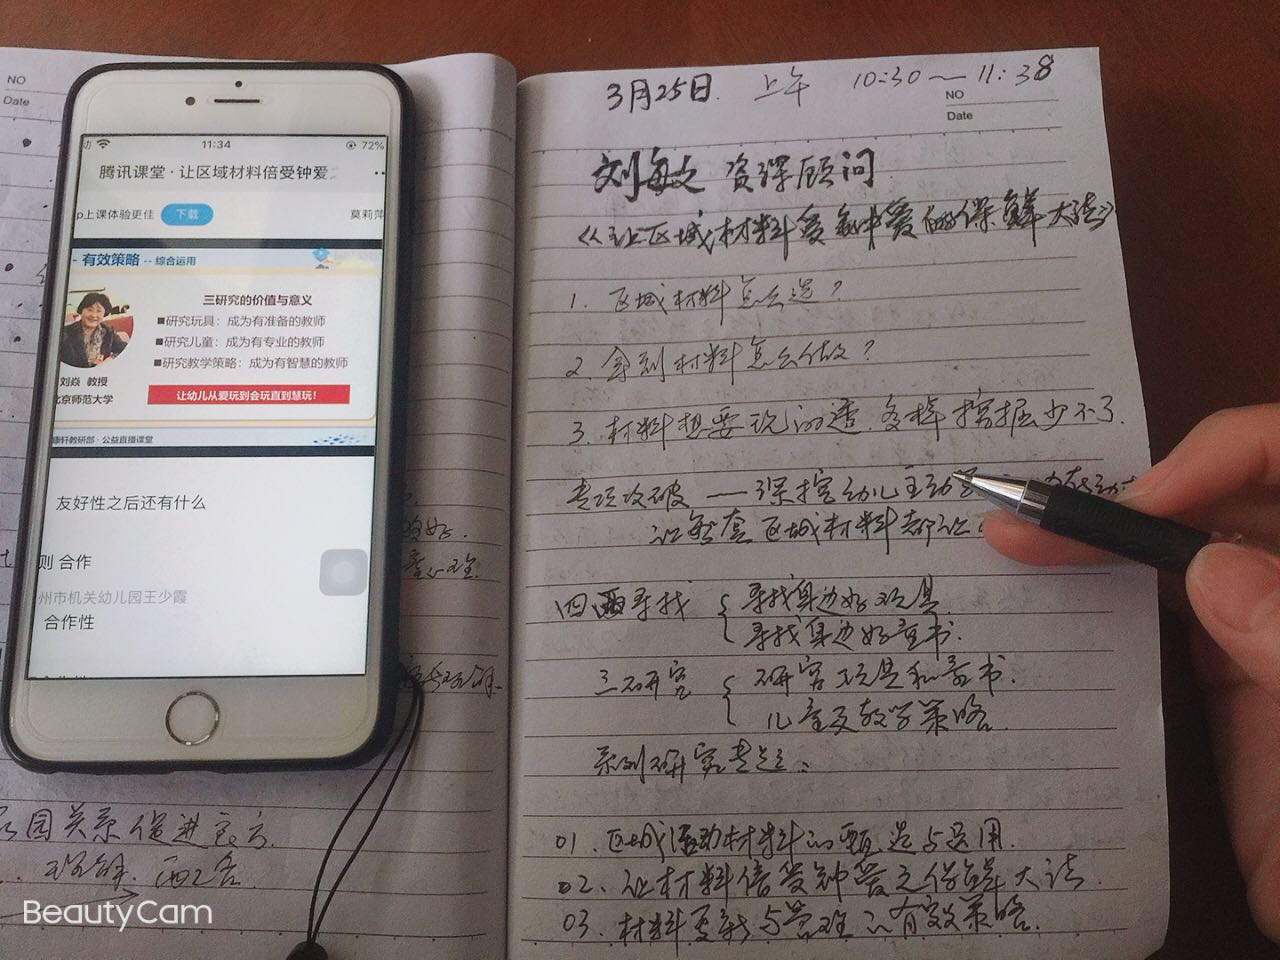 NO
Date
11:34
72%
腾讯课堂·让区域材料倍受钟爱
p上课体验更佳 下载 莫莉萍
- 有效策略 -- 综合运用
三研究的价值与意义
■研究玩具：成为有准备的教师
■研究儿童：成为有专业的教师
■研究教学策略：成为有智慧的教师
刘焱 教授
北京师范大学
让幼儿从爱玩到会玩直到慧玩！
康轩教研部·公益直播课堂
友好性之后还有什么
则 合作
州市机关幼儿园王少霞
合作性
园关系促进
BeautyCam
3月25日. 上午 10:30～11:38
NO
Date
刘海文 资深顾问
《让区域材料受钟爱的保鲜大法》
1. 区域材料怎么选？
2. 拿到材料怎么做？
3. 材料想要玩的透，多样挖掘少不了.
专项攻破——深挖幼儿主动
让整套区域材料都让
四两寻找 { 寻找身边好玩具.
寻找身边好童书.
三研究 { 研究玩具和童书.
儿童及教学策略.
系列研究专题：
01. 区域活动材料的甄选与运用.
02. 让材料倍受钟爱之保鲜大法.
03. 材料更新与营难的有效策略.